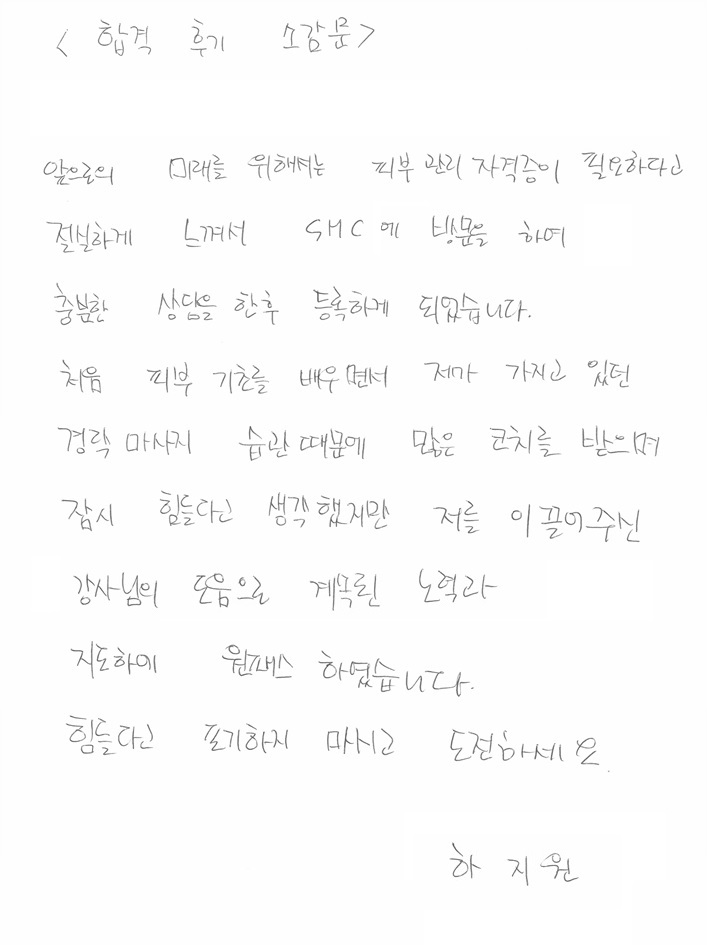 < 합격 후기 소감문 >
앞으로의 미래를 위해서는 피부 관리 자격증이 필요하다고
절실하게 느껴서 SMC에 방문을 하여
충분한 상담을 한후 등록하게 되었습니다.
처음 피부 기초를 배우면서 저가 가지고 있던
경락 마사지 습관 때문에 많은 코치를 받으며
잠시 힘들다고 생각했지만 저를 이끌어주신
강사님의 도움으로 계속된 노력과
지도하에 원패스 하였습니다.
힘들다고 포기하지 마시고 도전하세요.
하지원